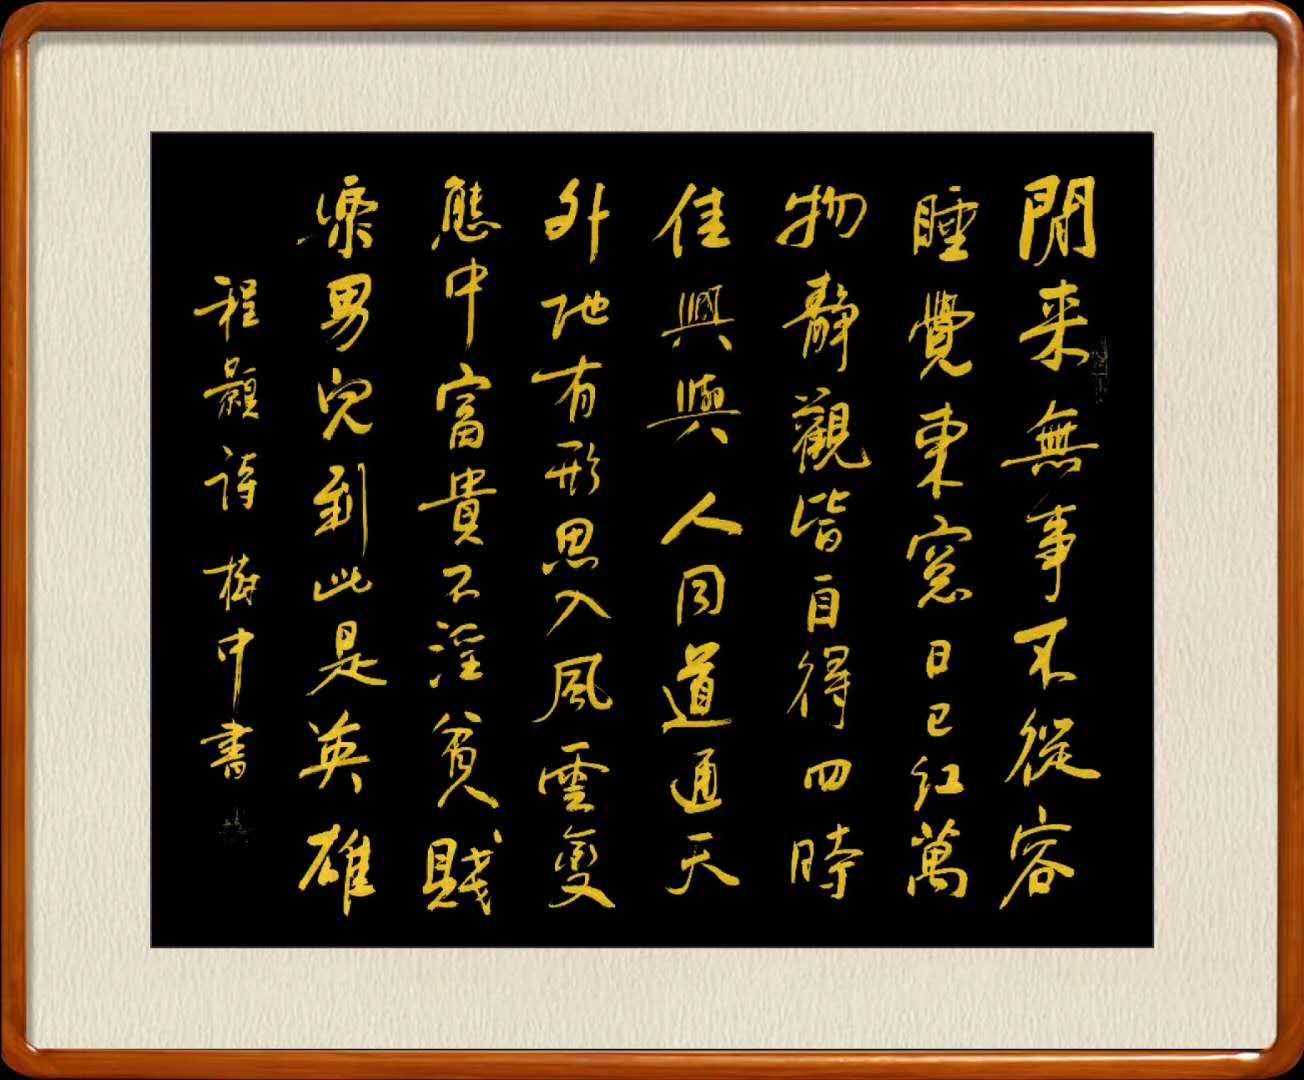 閒来無事不從容
睡覺東窓日已紅萬
物靜觀皆自得四時
佳興與人同道通天
外地有形思入風雲變
態中富貴不淫貧賤
樂男兒到此是英雄
程顥詩 梅中書